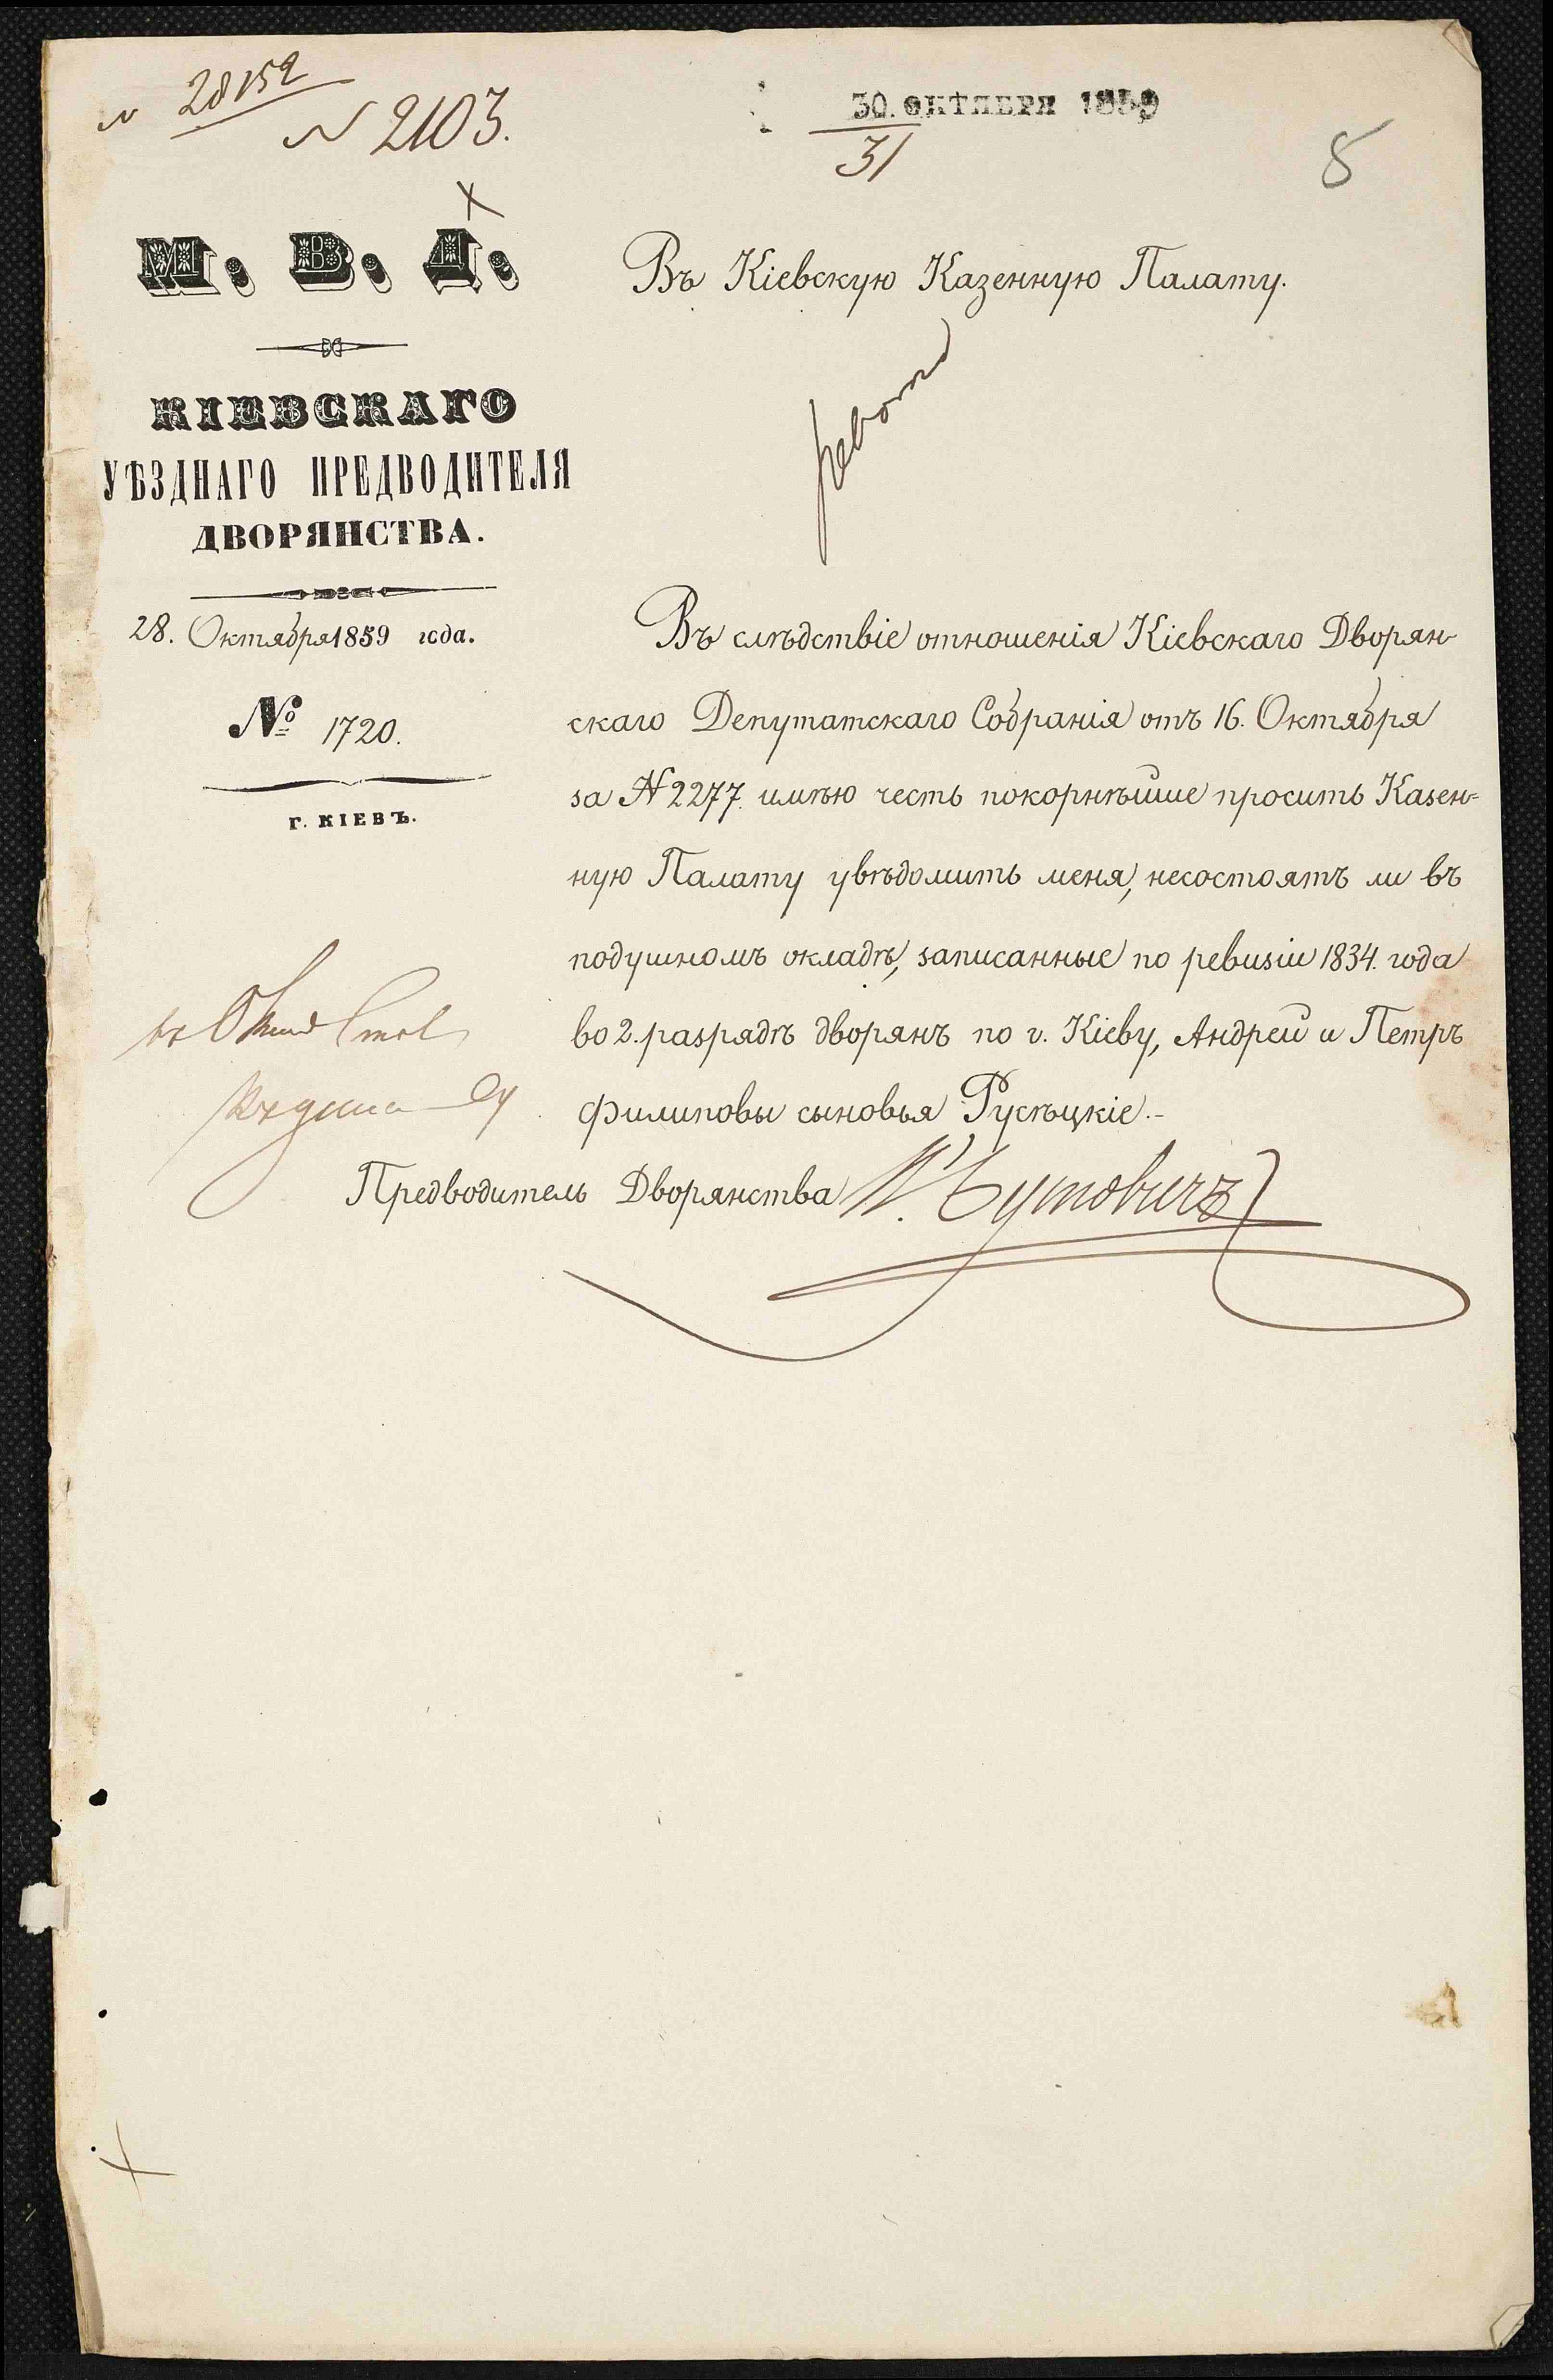 N 28152
N 2103.
30. ОКТЯБРЯ 1859
31
8
М. В. Д.
КІЕВСКАГО
УѢЗДНАГО ПРЕДВОДИТЕЛЯ
ДВОРЯНСТВА.
28. Октября 1859 года.
№ 1720.
Г. КІЕВЪ.
Въ Кіевскую Казенную Палату.
Въ слѣдствіе отношенія Кіевскаго Дворян-
скаго Депутатскаго Собранія отъ 16. Октября
за N 2277. имѣю честь покорнѣйше просить Казен=
ную Палату увѣдомить меня, несостоятъ ли въ
подушномъ окладѣ, записанные по ревизіи 1834. года
во 2. разрядѣ дворянъ по г. Кіеву, Андрей и Петръ
Филиповы сыновья Русѣцкіе.-
Предводитель Дворянства Бутовичъ